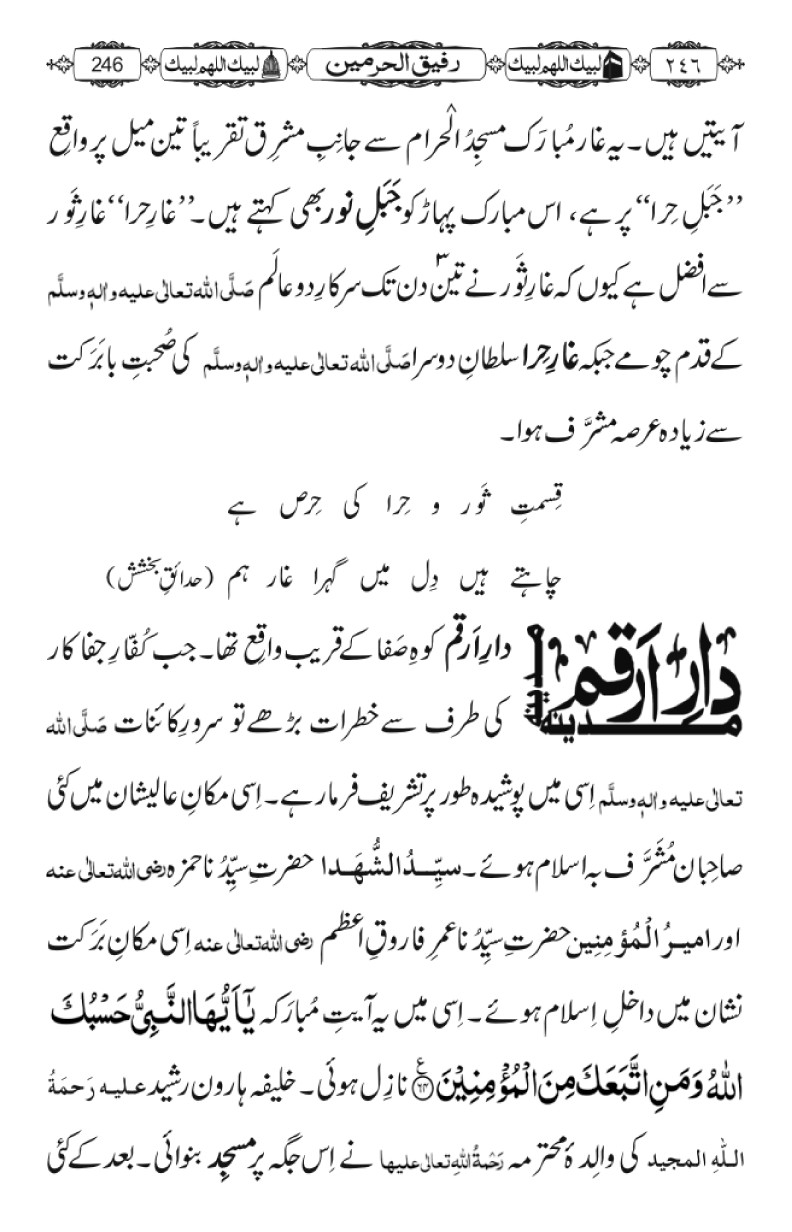 ٢٤٦ لبیك اللهم لبیك رفیق الحرمین لبیك اللهم لبیك 246
آیتیں ہیں۔ یہ غار مُبارَک مسجِدُ الْحرام سے جانِبِ مشرِق تقریباً تین میل پر واقِع
’’جَبَلِ حِرا‘‘ پر ہے، اس مبارک پہاڑ کو جَبَلِ نور بھی کہتے ہیں۔ ’’غارِ حرا‘‘ غارِ ثَور
سے افضل ہے کیوں کہ غارِ ثَور نے تین۳ دن تک سرکارِ دو عالَم صَلَّی اللہ تعالیٰ علیہ والہٖ وسلَّم
کے قدم چومے جبکہ غارِ حِرا سلطانِ دوسرا صَلَّی اللہ تعالیٰ علیہ والہٖ وسلَّم کی صُحبتِ با بَرَکت
سے زیادہ عرصہ مشرَّف ہوا۔
قِسمتِ ثَور و حِرا کی حِرص ہے
چاہتے ہیں دِل میں گہرا غار ہم (حدائقِ بخشش)
دارِ اَرقم
مدینہ
مدینہ
دارِ اَرقم کوہِ صَفا کے قریب واقِع تھا۔ جب کُفّارِ جفا کار
کی طرف سے خطرات بڑھے تو سرورِ کائنات صَلَّی اللہ
تعالیٰ علیہ والہٖ وسلَّم اِسی میں پوشیدہ طور پر تشریف فرما رہے۔ اِسی مکانِ عالیشان میں کئی
صاحِبان مُشَرَّف بہ اسلام ہوئے۔ سیِّدُ الشُّھَدا حضرتِ سیِّدُنا حمزہ رضی اللہ تعالیٰ عنہ
اور امیرُ الْمُؤمِنِین حضرتِ سیِّدُنا عمرِ فاروقِ اعظم رضی اللہ تعالیٰ عنہ اِسی مکانِ بَرَکت
نشان میں داخلِ اِسلام ہوئے۔ اِسی میں یہ آیتِ مُبارَکہ یٰۤاَیُّهَا النَّبِیُّ حَسْبُكَ
اللّٰهُ وَ مَنِ اتَّبَعَكَ مِنَ الْمُؤْمِنِیْنَ۠(۶۴) نازِل ہوئی۔ خلیفہ ہارون رشید علیہ رَحمَۃُ
اللّٰہِ المجید کی والِدۂ محترمہ رَحْمَۃُ اللّٰہِ تعالیٰ علیہا نے اِس جگہ پر مسجِد بنوائی۔ بعد کے کئی